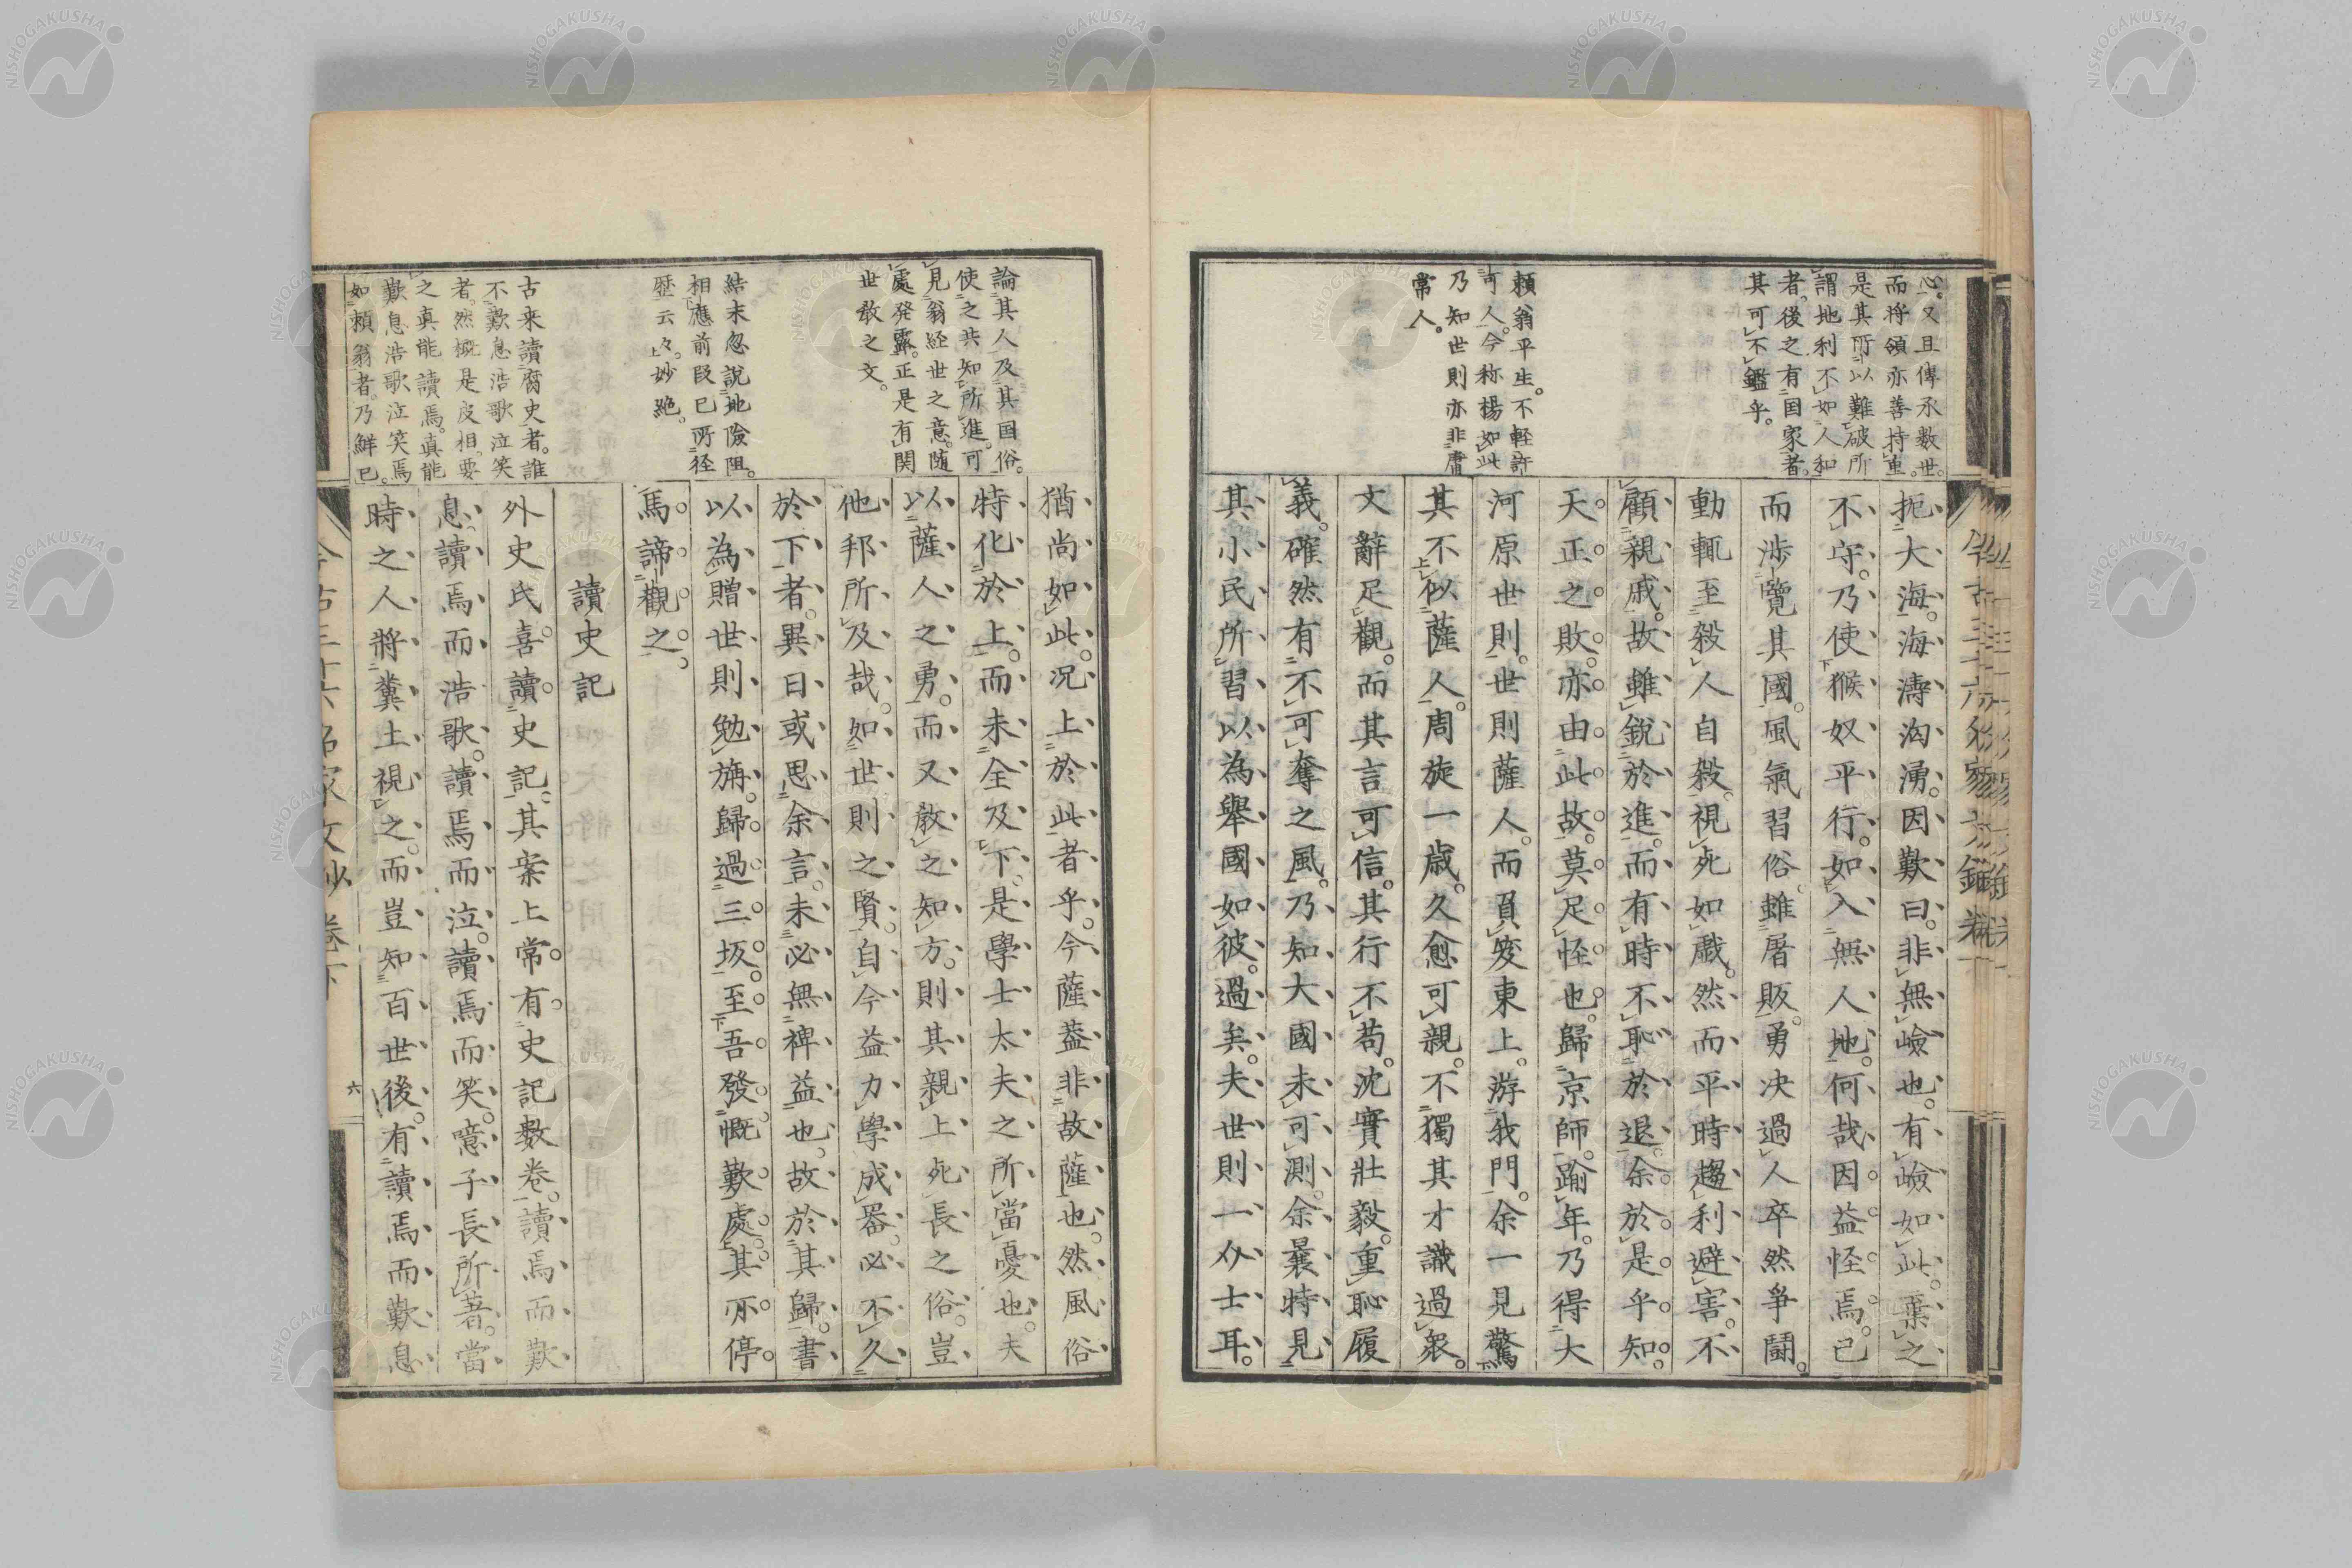 心。又且傳承数世。
而将領亦善持重。
是其所以難破所
謂地利不如人和
者。後之有国家者。
其可不鑑乎。
頼翁平生。不軽許
可人。今称楊如此
乃知世則亦非庸
常人。
扼大海。海濤洶湧。因歎曰。非無嶮也。有嶮如此。棄之
不守。乃使猴奴平行。如入無人地。何哉。因益怪焉。已
而渉覽其國。風氣習俗。雖屠販。勇决過人卒然爭鬪。
動輒至殺人自殺。視死如戲。然而平時趨利避害。不
顧親戚。故雖銳於進。而有時不恥於退。余於是乎知。
天正之敗。亦由此故。莫足怪也。歸京師。踰年。乃得大
河原世則。世則薩人。而負笈東上。游我門。余一見驚
其不似薩人。周旋一歳。久愈可親。不獨其才識過衆。
文辭足觀。而其言可信。其行不苟。沈實壯毅。重恥履
義。確然有不可奪之風。乃知大國未可測。余曩特見
其小民所習以為舉國如彼。過矣。夫世則一介士耳。
論其人及其国俗。
使之共知所進。可
見翁経世之意。随
處発露。正是有関
世敎之文。
結末忽説地險阻。
相應前段已所径
歴云々。妙絶。
古来讀腐史者。誰
不歎息浩歌泣笑
者。然概是皮相。要
之真能讀焉。真能
歎息浩歌泣笑焉
如頼翁者。乃鮮已。
猶尚如此。况上於此者乎。今薩蓋非故薩也。然風俗
特化於上。而未全及下。是學士太夫之所當憂也。夫
以薩人之勇。而又敎之知方。則其親上死長之俗。豈
他邦所及哉。如世則之賢。自今益力學成器。必不久
於下者。異日或思余言。未必無裨益也。故於其歸。書
以為贈世則勉旃。歸過三坂。至吾發慨歎處。其亦停
馬。諦觀之。
讀史記
外史氏喜讀史記。其案上常有史記数卷。讀焉而歎
息。讀焉而浩歌。讀焉而泣。讀焉而笑。噫子長所著。當
時之人將糞土視之。而豈知百世後。有讀焉而歎息
今古三十六名家文抄 卷下
六